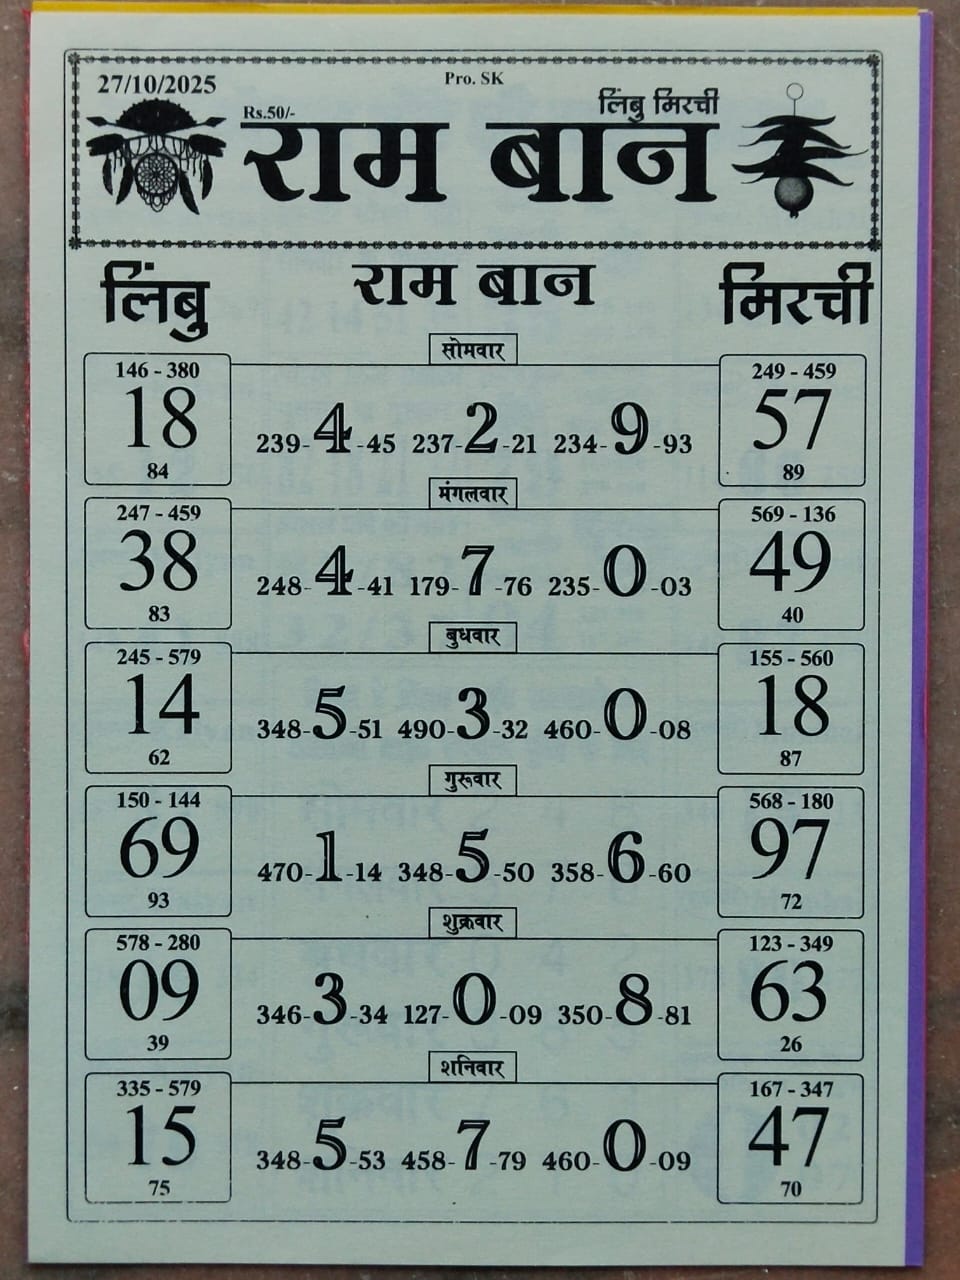 27/10/2025
Pro. SK
Rs.50/-
लिंबु मिरची
राम बान
लिंबु
राम बान
मिरची
सोमवार
146 - 380
18
84
239-4-45 237-2-21 234-9-93
249 - 459
57
89
मंगलवार
247 - 459
38
83
248-4-41 179-7-76 235-0-03
569 - 136
49
40
बुधवार
245 - 579
14
62
348-5-51 490-3-32 460-0-08
155 - 560
18
87
गुरूवार
150 - 144
69
93
470-1-14 348-5-50 358-6-60
568 - 180
97
72
शुक्रवार
578 - 280
09
39
346-3-34 127-0-09 350-8-81
123 - 349
63
26
शनिवार
335 - 579
15
75
348-5-53 458-7-79 460-0-09
167 - 347
47
70